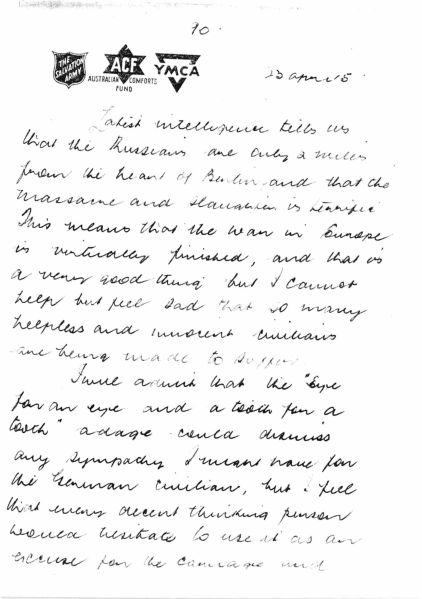 90.
THE
SALVATION
ARMY
ACF
AUSTRALIAN COMFORTS
FUND
YMCA
23 April 45
Latest intelligence tells us
that the Russians are only 2 miles
from the heart of Berlin and that the
massacre and slaughter is terrific
This means that the war in Europe
is virtually finished, and that is
a very good thing but I cannot
help but feel sad that so many
helpless and innocent civilians
are being made to suffer
I will admit that the "Eye
for an eye and a tooth for a
tooth" adage could dismiss
any sympathy I might have for
the German civilian, but I feel
that every decent thinking person
would hesitate to use it as an
excuse for the carnage and